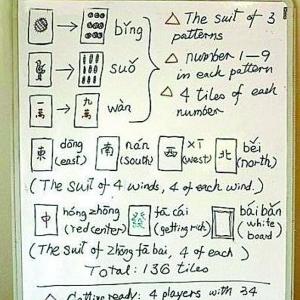 bǐng
suǒ
一萬 → 九萬 wàn
△ The suit of 3 patterns
△ number 1-9 in each pattern
△ 4 tiles of each number
東 dōng (east) 南 nán (south) 西 xī (west) 北 běi (north)
(The suit of 4 winds, 4 of each wind.)
中 hóng zhōng (red center) 發 fā cái (getting rich) bái bǎn (white board)
(The suit of zhōng fā bái, 4 of each)
Total: 136 tiles
△ Getting ready: 4 players with 34